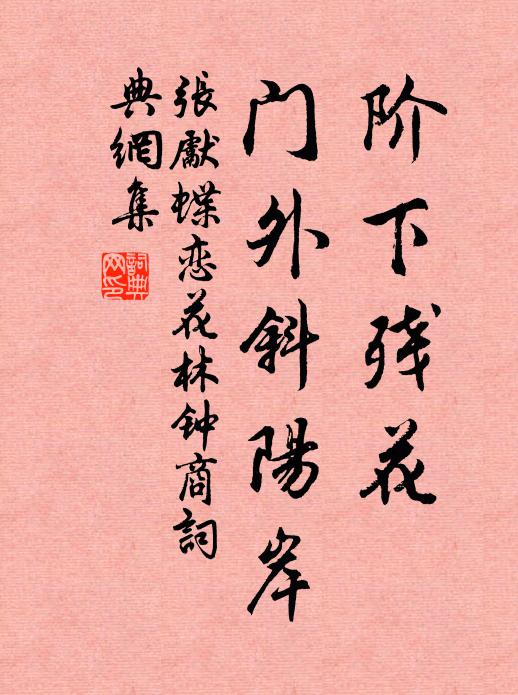 阶下残花
门外斜陽岸
張獻蝶恋花林钟商詞
典網集
詞典
网印